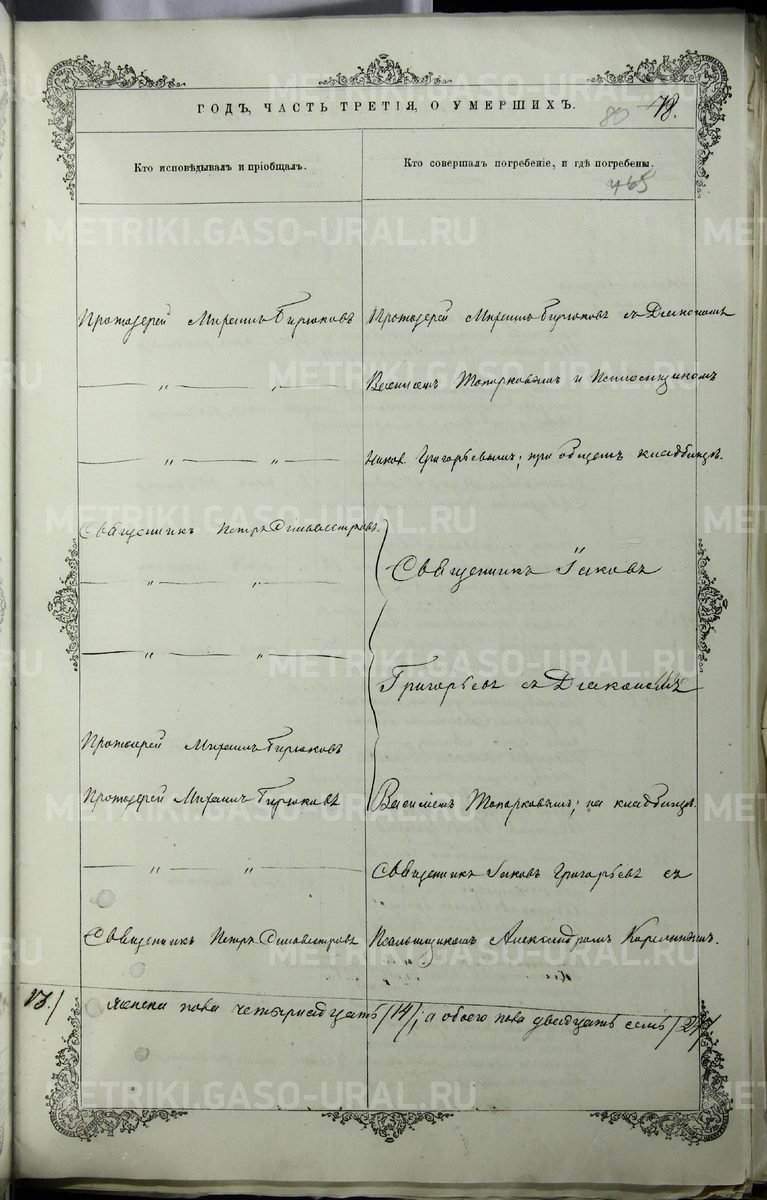 ГОДЪ, ЧАСТЬ ТРЕТІЯ, О УМЕРШИХЪ.
80 78.
Кто исповѣдывалъ и пріобщалъ.
Кто совершалъ погребеніе, и гдѣ погребены.
465
Протоіерей Михаилъ Бирюковъ
Протоіерей Михаилъ Бирюковъ съ Діакономъ
— " — " —
Василіемъ Топорковымъ и Псаломщикомъ
— " — " —
Григорьевымъ; при общемъ кладбищѣ.
Священникъ Петръ Сильвестровъ.
Священникъ Іаковъ
— " — " —
— " — " —
Григорьевъ съ Діакономъ
Протоіерей Михаилъ Бирюковъ
Протоіерей Михаилъ Бирюковъ
Василіемъ Топорковымъ; на кладбищѣ.
— " — " —
Священникъ Іаковъ Григорьевъ съ
Священникъ Петръ Сильвестровъ
Псаломщикомъ Александромъ
13./ женска пола четырнадцать /14/; а обоего пола двадцать семь /27/
METRIKI.GASO-URAL.RU